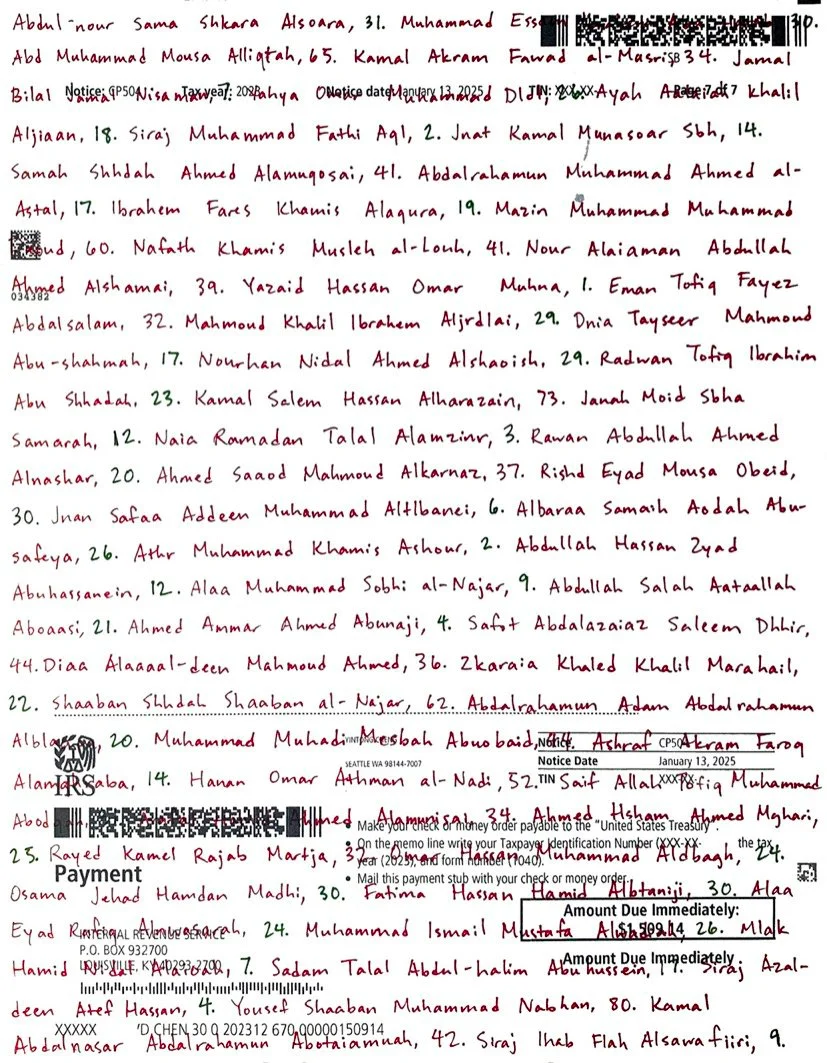 Abdul-nour Sama Shkara Alsoara, 31. Muhammad 30.
Abd Muhammad Mousa Alliqtah, 65. Kamal Akram Fawad al-Masri, 34. Jamal
SB
Bilal Jamal Nisaman, 7. Yahya Omar Muhammad Dldl, 26. Ayah Khalil
Notice: CP504 Tax year: 2023 Notice date: January 13, 2025 TIN: XXX-XX- Page 7 of 7
Aljiaan, 18. Siraj Muhammad Fathi Aql, 2. Jnat Kamal Munasoar Sbh, 14.
Samah Shhdah Ahmed Alamuqosai, 41. Abdalrahamun Muhammad Ahmed al-
Astal, 17. Ibrahem Fares Khamis Alaqura, 19. Mazin Muhammad Muhammad
60. Nafath Khamis Musleh al-Louh, 41. Nour Alaiaman Abdullah
Ahmed Alshamai, 39. Yazaid Hassan Omar Muhna, 1. Eman Tofiq Fayez
034382
Abdalsalam, 32. Mahmoud Khalil Ibrahem Aljrdlai, 29. Dnia Tayseer Mahmoud
Abu-shahmah, 17. Nourhan Nidal Ahmed Alshaoish, 29. Radwan Tofiq Ibrahim
Abu Shhadah, 23. Kamal Salem Hassan Alharazain, 73. Janah Moid Sbha
Samarah, 12. Naia Ramadan Talal Alamzinr, 3. Rawan Abdullah Ahmed
Alnashar, 20. Ahmed Saaod Mahmoud Alkarnaz, 37. Rishd Eyad Mousa Obeid,
30. Jnan Safaa Addeen Muhammad Altlbanei, 6. Albaraa Samaih Aodah Abu-
safeya, 26. Athr Muhammad Khamis Ashour, 2. Abdullah Hassan Zyad
Abuhassanein, 12. Alaa Muhammad Sobhi al-Najar, 9. Abdullah Salah Aataallah
Aboaasi, 21. Ahmed Ammar Ahmed Abunaji, 4. Safot Abdalazaiaz Saleem Dhhir,
44. Diaa Alaaaal-deen Mahmoud Ahmed, 36. Zkaraia Khaled Khalil Marahail,
22. Shaaban Shhdah Shaaban al-Najar, 62. Abdalrahamun Adam Abdalrahamun
20. Muhammad Muhadi Mosbah Abuobaid, 44. Ashraf Akram Faroq
Notice CP504
SEATTLE WA 98144-7007
Notice Date January 13, 2025
IRS
14. Hanan Omar Athman al-Nadi, 52. Saif Allah Tofiq Muhammad
TIN XXX-XX-
Ahmed Alamunisai, 34. Ahmed Hsham Ahmed Mghari,
• Make your check or money order payable to the "United States Treasury".
• On the memo line write your Taxpayer Identification Number (XXX-XX- the tax
year (2023), and form number (1040).
• Mail this payment stub with your check or money order.
25. Rayed Kamel Rajab Martja, Omar Hassan Muhammad Aldbagh, 24.
Payment
Osama Jehad Hamdan Madhi, 30. Fatima Hassan Hamid Albtaniji, 30. Alaa
Amount Due Immediately:
$1,509.14
Eyad Rafiq 24. Muhammad Ismail Mustafa 26. Mlak
INTERNAL REVENUE SERVICE
P.O. BOX 932700
LOUISVILLE, KY 40293-2700
Amount Due Immediately
Hamid Nidal 7. Sadam Talal Abdul-halim Abuhussein, 17. Siraj Azal-
deen Atef Hassan, 4. Yousef Shaaban Muhammad Nabhan, 80. Kamal
XXXXX 'D CHEN 30 0 202312 670 00000150914
Abdalnasar Abdalrahamun Abotaiamuah, 42. Siraj Ihab Flah Alsawafiiri, 9.